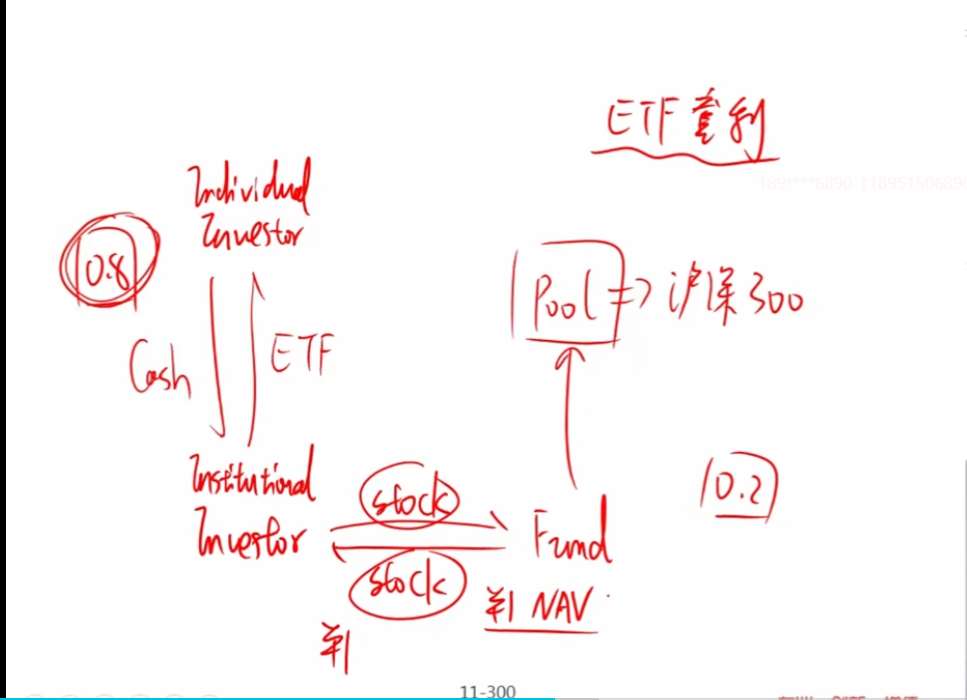 ETF套利
Individual
Investor
0.8
Pool => 沪深300
Cash
ETF
Institutional
Investor
stock
Fund
0.2
stock
¥1 NAV
¥1
11-300